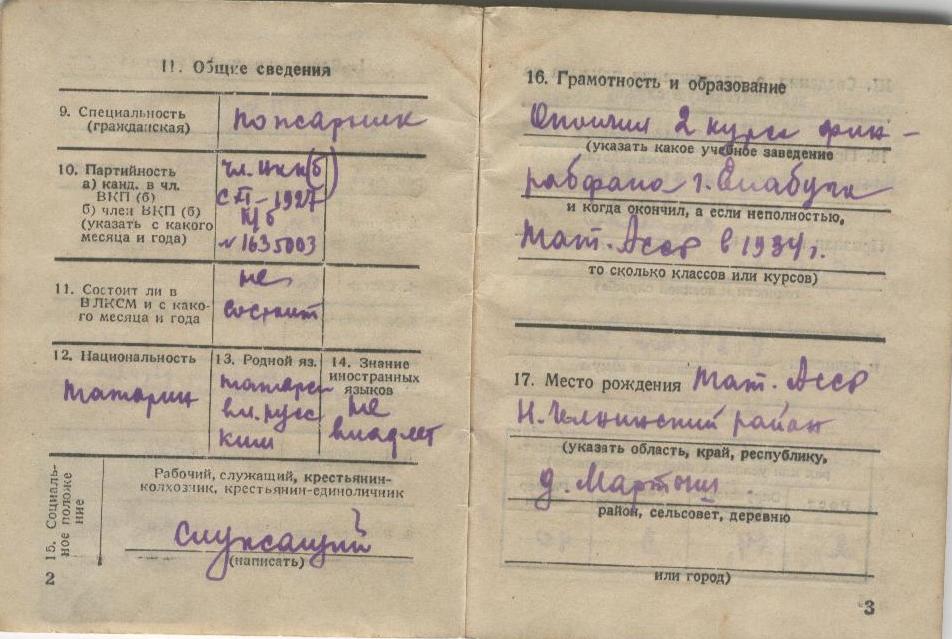 II. Общие сведения
9. Специальность
(гражданская)
пожарник
10. Партийность
а) канд. в чл.
ВКП (б)
б) член ВКП (б)
(указать с какого
месяца и года)
чл. ВКП(б)
с II-1927
п/б
№1635003
11. Состоит ли в
ВЛКСМ и с како-
го месяца и года
не
состоит
12. Национальность
татарин
13. Родной яз.
татарс
вл. русс
ким
14. Знание
иностранных
языков
не
владеет
15. Социаль-
ное положе
ние
Рабочий, служащий, крестьянин-
колхозник, крестьянин-единоличник
служащий
(написать)
2
16. Грамотность и образование
Окончил 2 курса
(указать какое учебное заведение
рабфака г. Елабуга
и когда окончил, а если неполностью,
Тат. Асср в 1934 г.
то сколько классов или курсов)
17. Место рождения Тат. Асср
Н. Челнинский район
(указать область, край, республику,
д. Мартыш
район, сельсовет, деревню
или город)
3